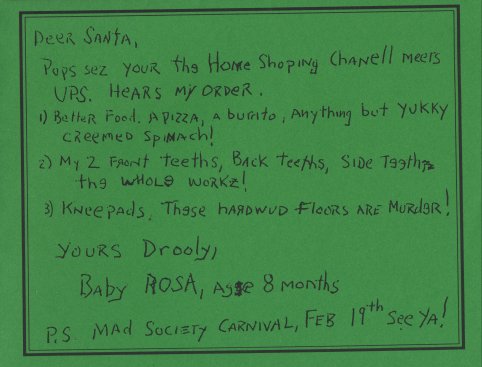 Deer Santa,
Pops sez your the Home Shoping Chanell meets
UPS. Hears my order.
1) Better Food. A pizza, a burrito, anything but YUKKY
creemed spinach!
2) My 2 front teeths, Back teeths, Side Teeths
the whole workz!
3) Kneepads. These hardwud floors are Murder!
Yours Drooly,
Baby Rosa, age 8 months
P.S. Mad Society Carnival, Feb 19th See Ya!